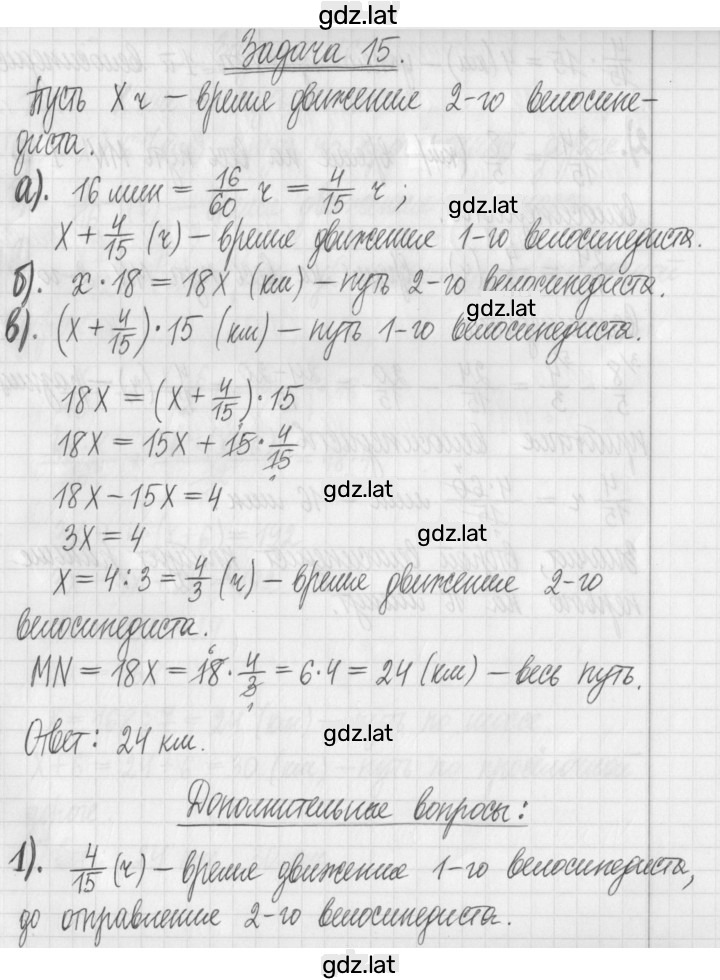 gdz.lat
Задача 15.
Пусть X ч – время движения 2-го велосипе-
диста.
а). 16 мин = 16/60 ч = 4/15 ч ;
gdz.lat
X + 4/15 (ч) – время движения 1-го велосипедиста.
б). x · 18 = 18X (км) – путь 2-го велосипедиста.
gdz.lat
в). (X + 4/15) · 15 (км) – путь 1-го велосипедиста.
18X = (X + 4/15) · 15
18X = 15X + 15 · 4/15
1
gdz.lat
18X – 15X = 4
gdz.lat
3X = 4
X = 4 : 3 = 4/3 (ч) – время движения 2-го
велосипедиста.
6
MN = 18X = 18 · 4/3 = 6·4 = 24 (км) – весь путь.
1
Ответ: 24 км.
gdz.lat
Дополнительные вопросы:
1). 4/15 (ч) – время движения 1-го велосипедиста,
до отправления 2-го велосипедиста.
gdz.lat